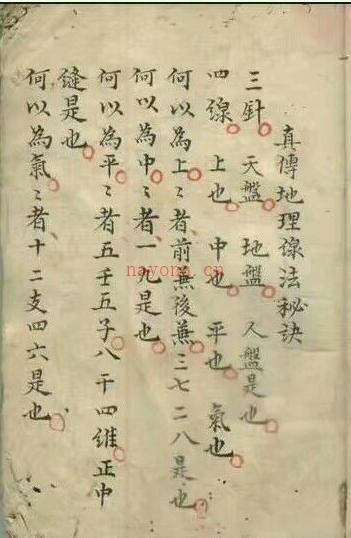 真傳地理線法秘訣
三針 天盤 地盤 人盤是也
四線 上也 中也 平也 氣也
何以為上〻者前兼後兼三七二八是也
何以為中〻者一九是也
何以為平〻者五壬五子八干四維正中
縫是也
何以為氣〻者十二支四六是也
nayona.cn